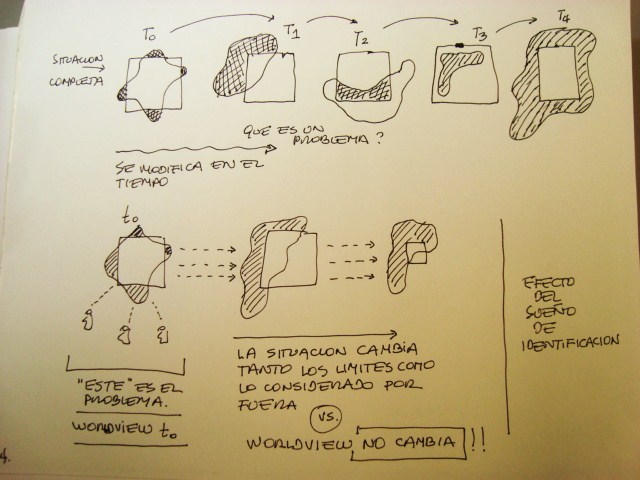 T0 T1 T2 T3 T4
SITUACION
COMPLETA
QUE ES UN
PROBLEMA?
SE MODIFICA EN EL
TIEMPO
t0
"ESTE" ES EL
PROBLEMA.
WORLDVIEW t0
LA SITUACION CAMBIA
TANTO LOS LIMITES COMO
LO CONSIDERADO POR
FUERA
VS.
WORLDVIEW NO CAMBIA!!
EFECTO
DEL
SUEÑO
DE
IDENTIFICACION
4.